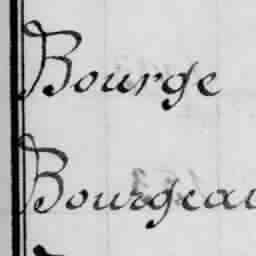 Bourge
Bourgeau